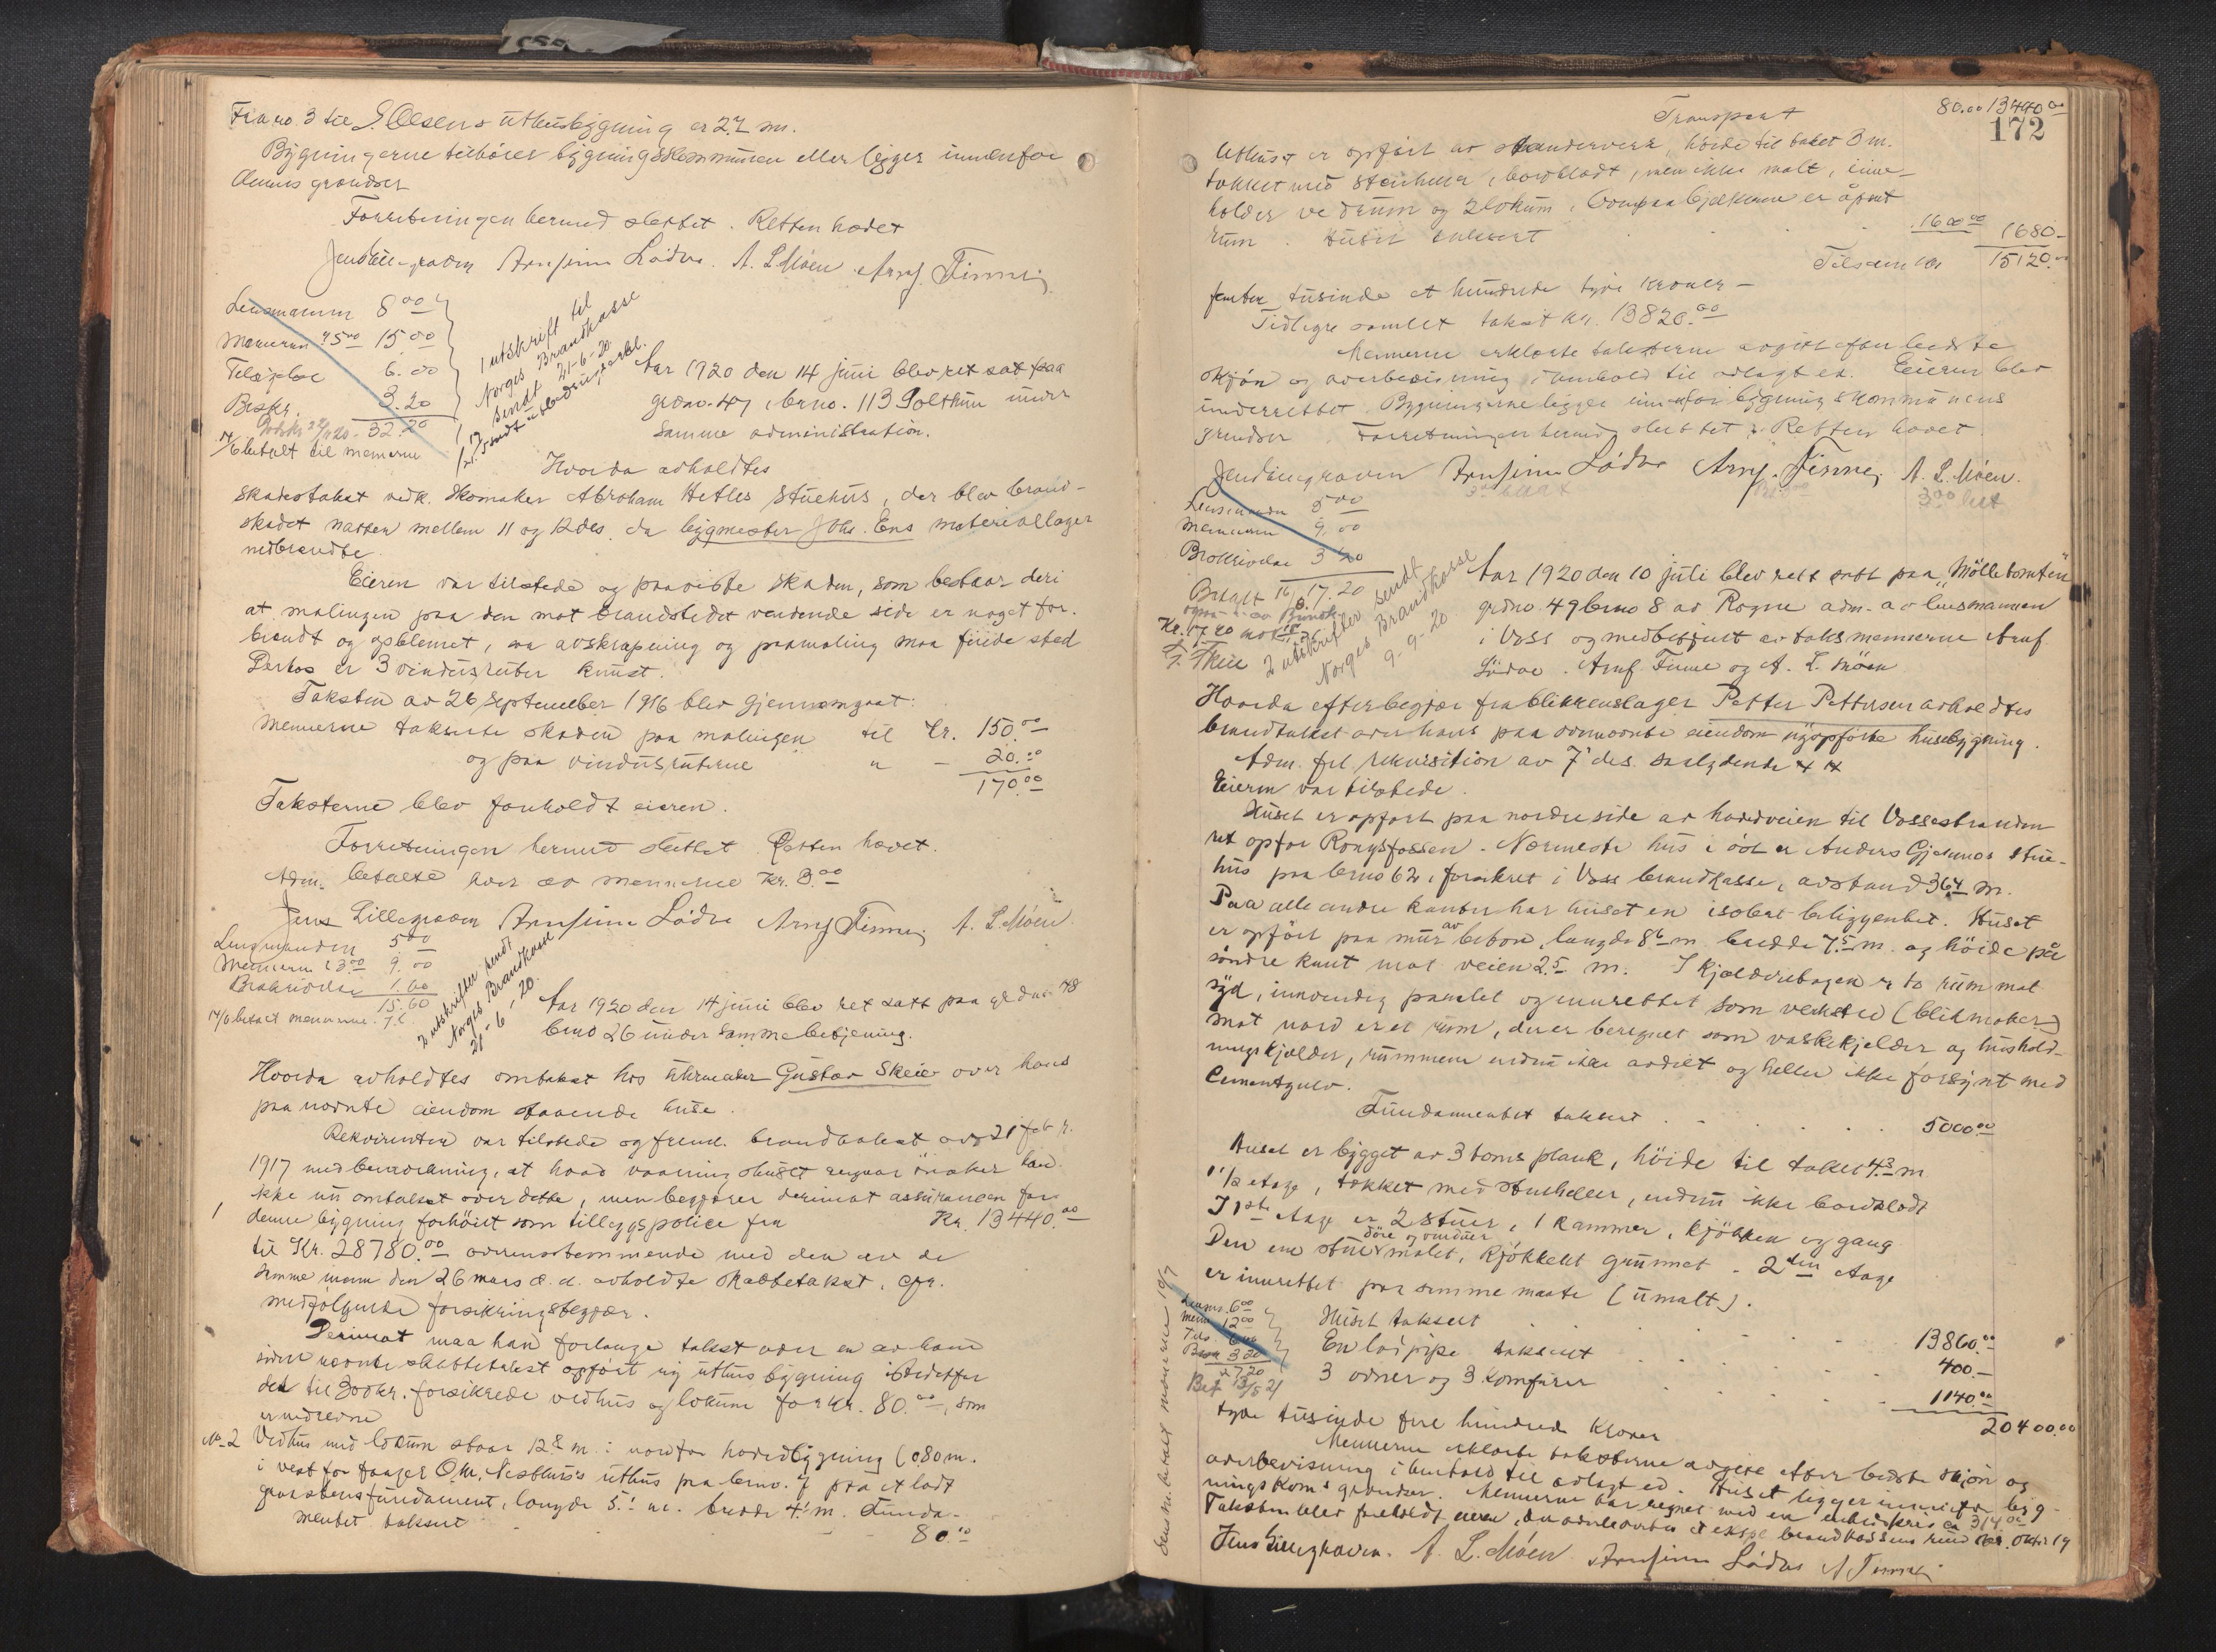 Fra no. 3 til S. Olsens uthusbygning er 2.7 m.
Bygningerne tilhører bygningskommunen eller ligger innenfor
dennes grændser
Forretningen hermed sluttet. Retten hævet
Jens Lillegraven Arnfinn Lödve. A. L. Möen. Arnf. Finne
Lensmannen 8.00
Mennerne à 5.00 15.00
Telægelse 6.00
Beskr. 3.20
32.20
14/6 betalt til mennerne
1 utskrift til
Norges Brandkasse
sendt 21-6-20.
Aar 1920 den 14 juni blev ret sat paa
grdno. 47, brno. 113 Solthun under
samme administration.
Hvorda avholdtes
skadestakst vedk. skomaker Abraham Hetles stuehus, der blev brand-
skadet natten mellem 11 og 12 des. da bygmester Johs. Ens materiallager
nedbrendte.
Eieren var tilstede og paaviste skaden, som bestaar deri
at malingen paa den mot brandstedet vendende side er noget for-
brendt og opblemet, saa avskrapning og paamaling maa finde sted
Derhos er 3 vindusruter knust.
Taksten av 26 september 1916 blev gjennemgaat:
Mennerne takserte skaden paa malingen til Kr. 150.00
og paa vindusruterne " - 20.00
170.00
Taksterne blev foreholdt eieren.
Forretningen hermed sluttet. Retten hævet.
Adm. betalte hver av mennerne Kr. 3.00
Jens Lillegraven Arnfinn Lödve Arnf Finne A. L. Möen.
Lensmanden 5.00
Mennerne à 3.00 9.00
Beskrivelse 1.60
15.60
14/6 betalt mennerne. J.L.
2 utskrifter sendt
Norges Brandkasse
21-6-20.
Aar 1920 den 14 juni blev ret satt paa grdno 48
brno 26 under samme betjening.
Hvorda avholdtes omtakst hos uhrmaker Gustav Skeie over hans
paa nævnte eiendom staaende huse.
Rekvirenten var tilstede og freml. brandtakst av 21 febr.
1917 med bemerkning, at hvad vaaningshuset angaar önsker han
ikke nu omtakst over dette, men begjærer derimot assurancen for
1 denne bygning forhöiet som tillægspolice fra Kr. 13440.00
til Kr. 28780.00 overensstemmende med den av de
samme menn den 26 mars d. a. avholdte skattetakst, cfr.
medfölgende forsikringsbegjær.
Derimot maa han forlange takst over en av ham
siden nævnte skattetakst opfört ny uthusbygning istedetfor
det til 300 kr. forsikrede vedhus og lokum for Kr. 80.00, som
er nedrevne
No. 2 Vedhus med lokum staar 12.8 m. i nord for hovedbygning (0.80 m.
i vest for fanger O. M. Nesthus's uthus paa brno. 7 paa et lodt
graastensfundament, længde 5.1 m. bredde 4.1 m. Funda-
mentet taksert 80.00
Transport 80.00 13440.00
172
Uthuset er opført av standerverk, høide til taket 3 m.
tækket med stenheller, bordklædt, men ikke malt, inne-
holder vedrum og 2 lokum. Ovenpaa bjelkerne er åpent
rum. Huset taksert 1600.00 1680-
Tilsammen 15120.-
femten tusinde et hundrede tyve kroner -
Tidligre samlet takst kr. 13820.00
Mennerne erklærte taksterne avgit efter bedste
skjön og overbevisning i henhold til avlagt ed. Eieren blev
underrettet. Bygningerne ligger innenfor bygningskommunens
grendser. Forretningen hermed sluttet. Retten hævet.
Jens Lillegraven Arnfinn Lödve Arnf. Finne, A. L. Möen.
Lensmanden 5.00
Mennerne 9.00
Beskrivelse 3.20
17.20
Betalt 16/8
G. Skeie
2 utskrifter sendt
Norges Brandkasse
9-9-20
Aar 1920 den 10 juli blev rett satt paa "Mölletomten"
grdno 49 brno 8 av Rogne adm. av lensmannen
i Voss og medbetjent av taksmennerne Arnf.
Lödve. Arnf. Finne og A. L. Möen
Hvorda efter begjær fra blikkenslager Petter Pettersen avholdtes
brandtakst over hans paa ovennævnte eiendom nyopförte husbygning.
Adm. frl. rekvisition av 7' des. saalydende
Eieren var tilstede.
Huset er opfört paa nordre side av hovedveien til Vossestranden
ret opfor Rongsfossen. Nærmeste hus i öst er Anders Gjernes stue-
hus paa brno 62, forsikret i Voss brandkasse, avstand 36.4 m.
Paa alle andre kanter har huset en isolert beliggenhet. Huset
er opfört paa mur av beton, længde 8.6 m bredde 7.5 m. og höide på
søndre kant mot veien 2.5 m. I kjælderetagen er to rum mot
syd, innvendig panelet og innrettet som verksted (blikmaker)
mot nord er et rum, der er beregnet som vaskekjelder og hushold-
nings kjelder, rummene endnu ikke avdelt og heller ikke forsynt med
Cementgulv.
Fundamentet taksert 5000.00
Huset er bygget av 3 toms plank, höide til taket 4.3 m
1 1/2 etage, tækket med stenheller, endnu ikke bordklædt
I 1ste etage er 2 stuer, 1 kammer, kjökken og gang
Den ene stue döre og vinduer malet, kjökkent grunnet. 2den etage
er innrettet paa samme maate (umalt).
Lensm. 6.00
Menn 12.00
Huset taksert 13860.00
En lös pipe taksert 400.-
3 ovner og 3 komfurer 1140.00
tyve tusinde fire hundred kroner 20400.00
Mennerne erklærte taksterne avgit efter bedste skjön og
overbevisning i henhold til avlagt ed. Huset ligger innenfor byg-
ningskom's grendser. Mennerne har regnet med en enhetspris ca 314.00
Taksten blev foreholdt eieren
Jens Lillegraven. A. L. Möen Arnfinn Lödve A Finne
Lensm. betalt mennerne 10/7